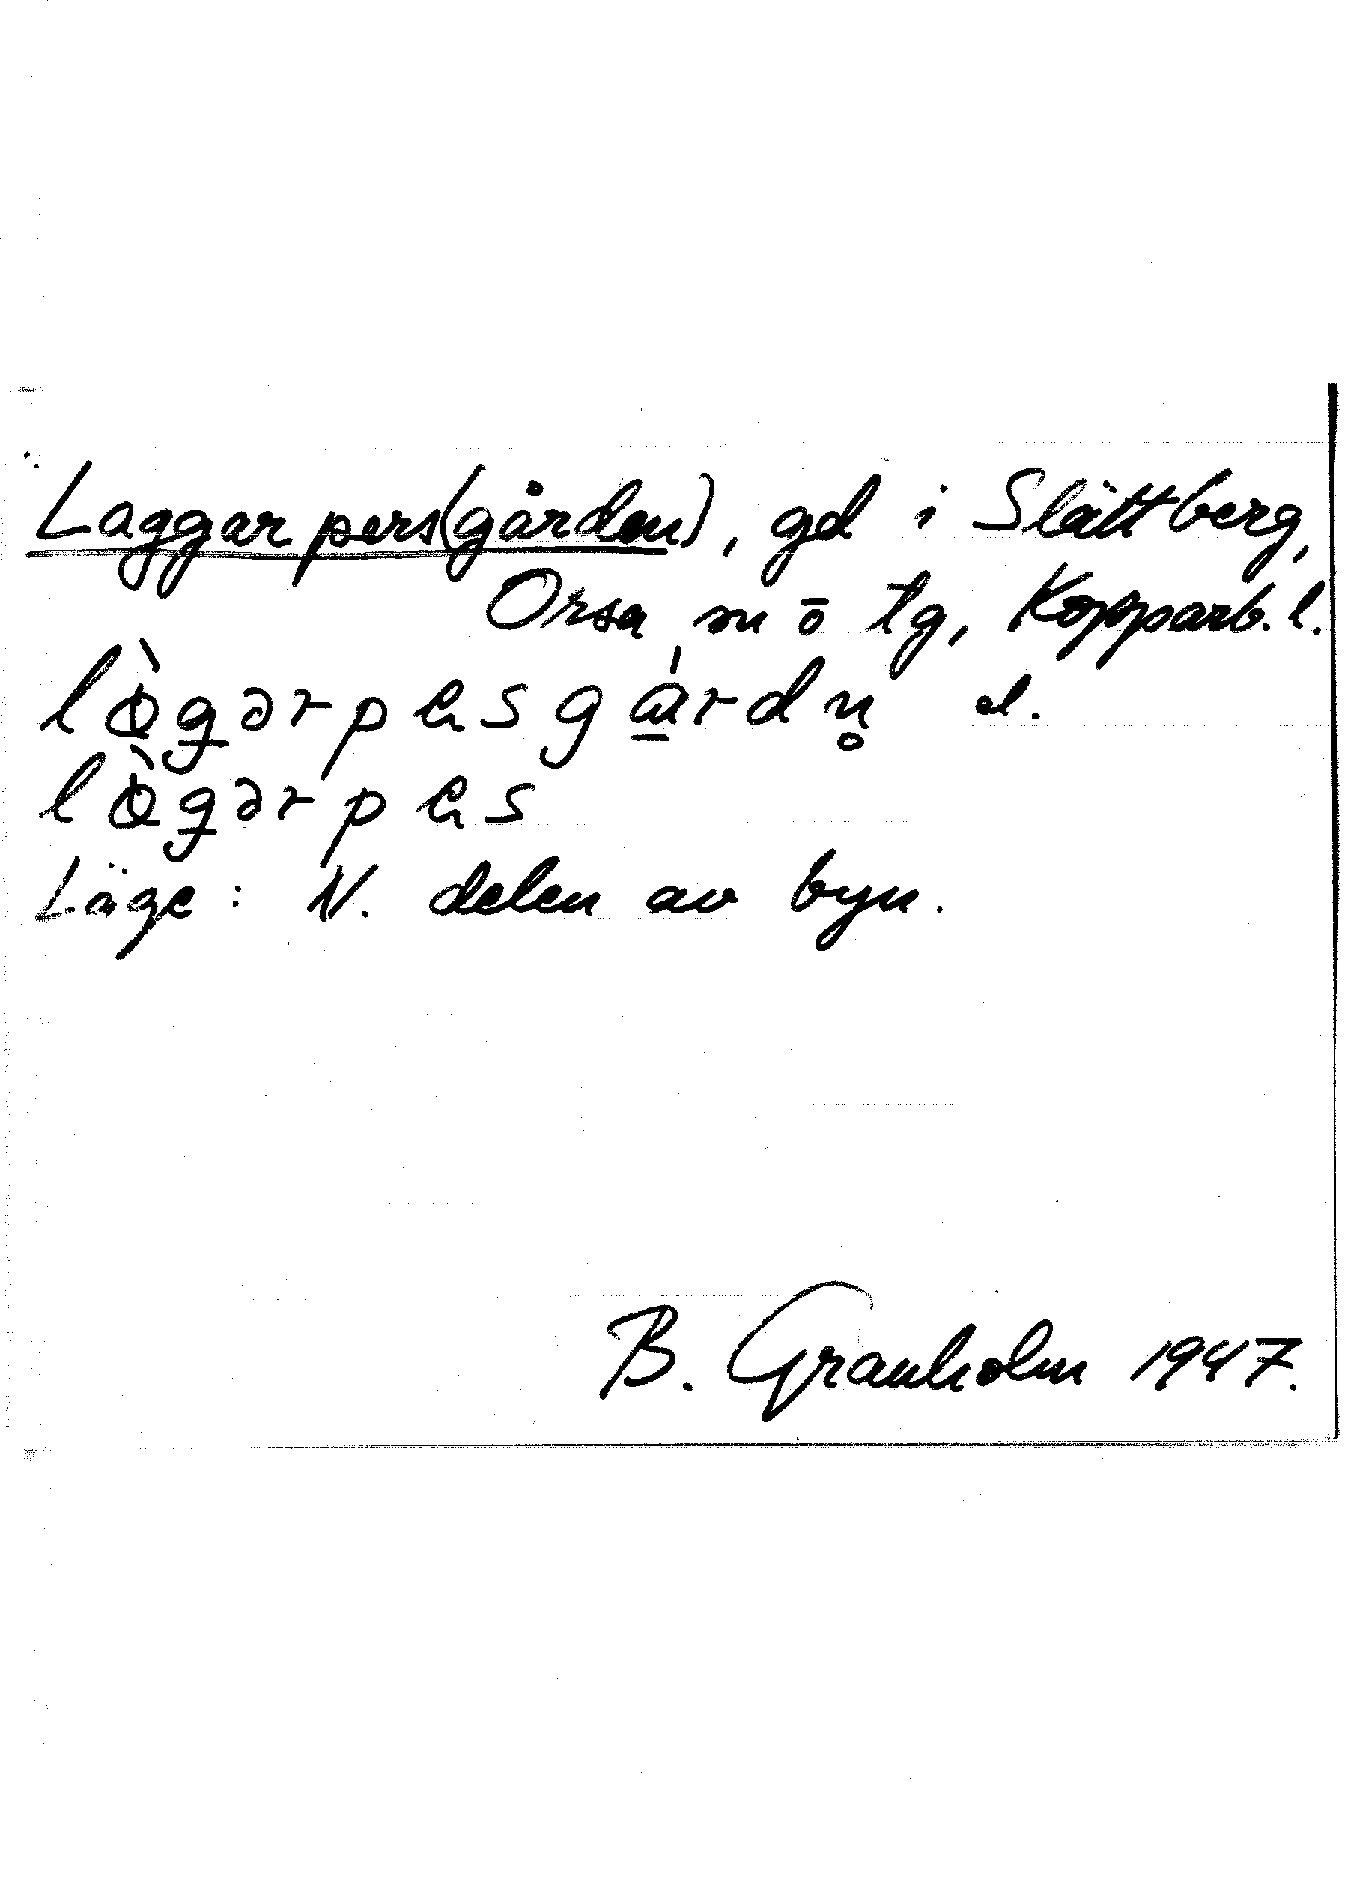 Laggarpers(gården), gd i Slättberg,
Orsa sn o tg, Kopparb. l.
el.
Läge: N. delen av byn.
B. Granholm 1947.